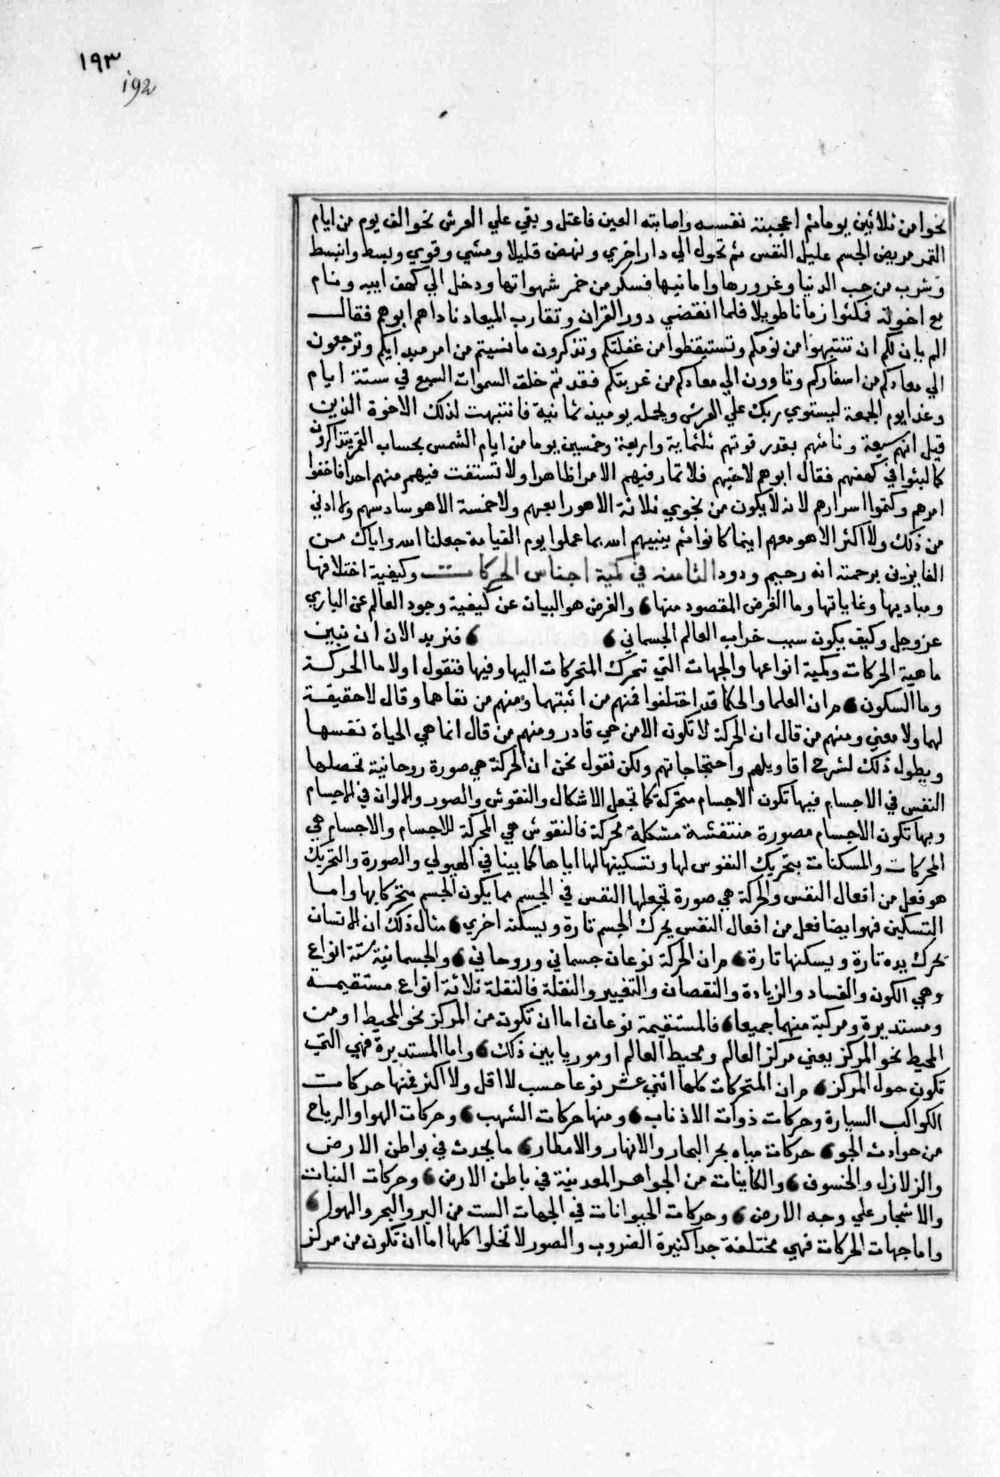 ١٩٣
192
نحوا من ثلاثين يوما ثم اعجبته نفسه واصابته العين فاعتل وبقي علي العرش نحو الف يوم من ايام
القمر مريض الجسم عليل النفس ثم تحول الي دار اخري ونهض قليلا ومشي وقوي وبسط وانبسط
وشرب من حب الدنيا وغرورها وامانيها فسكر من خمر شهواتها ودخل الي كهف ابيه ونام
مع اخوته فمكثوا زمانا طويلا فلما انقضي دور القران وتقارب الميعاد ناداهم ابوهم فقال
الم يان لكم ان تنتبهوا من نومكم وتستيقظوا من غفلتكم وتذكرون ما نسيتم من امر مبدايكم وترجعون
الي معادكم من اسفاركم وتاوون الي معادكم من غربتكم فقد تم خلق السموات السبع في ستة ايام
وغدا يوم الجمعة ليستوي ربك علي العرش ويحمله يوميذ ثمانية فانتبهت لذلك الاخوة الذين
قيل انهم سبعة ونامنهم بقدر قوتهم ثلثماية واربعة وخمسين يوما من ايام الشمس بحساب القمر يتذاكرون
كم لبثوا في كهفهم فقال ابوهم لاخيهم فلا تمار فيهم الا مرا ظاهرا ولا تستفت فيهم منهم احدا فاخفوا
امرهم وكتموا اسرارهم لانه لا يكون من نجوي ثلاثة الا هو رابعهم ولا خمسة الا هو سادسهم ولا ادني
من ذلك ولا اكثر الا هو معهم اينما كانوا ثم ينبيهم الله بما عملوا يوم القيامة جعلنا الله واياك من
الفايزين برحمته انه رحيم ودود الثامنه في كمية اجناس الحركات وكيفية اختلافها
ومباديها وغاياتها وما الغرض المقصود منها والغرض هو البيان عن كيفية وجود العالم عن الباري
عز وجل وكيف يكون سبب خراب العالم الجسماني فنريد الان ان نبين
ماهية الحركات وكمية انواعها والجهات التي تتحرك المتحركات اليها وفيها فنقول اولا ما الحركة
وما السكون مر ان العلما والحكما قد اختلفوا فمنهم من اثبتهما ومنهم من نفاهما وقال لا حقيقة
لهما ولا معني ومنهم من قال ان الحركة لا تكون الا من حي قادر ومنهم من قال انما هي الحياة نفسها
ويطول ذلك لشرح اقاويلهم واحتجاجاتهم ولكن نقول نحن ان الحركة هي صورة روحانية تحصلها
النفس في الاجسام فبها تكون الاجسام متحركة كما تجعل الاشكال والنقوش والصور والالوان في الاجسام
وبها تكون الاجسام مصورة منتقشة مشكلة محركة فالنفوس هي المحركة للاجسام والاجسام هي
المحركات والمسكنات بتحريك النفوس لها وتسكينها لها اياها كما بينا في الهيولي والصورة والتحريك
هو فعل من افعال النفس والحركة هي صورة تجعلها النفس في الجسم مما يكون الجسم متحركا بها واما
التسكين فهو ايضا فعل من افعال النفس يحرك الجسم تارة ويسكنه اخري مثال ذلك ان الانسان
يحرك يده تارة ويسكنها تارة مر ان الحركة نوعان جسماني وروحاني والجسمانية ستة انواع
وهي الكون والفساد والزيادة والنقصان والتغيير والنقلة فالنقلة ثلاثة انواع مستقيمه
ومستديرة ومركبة منهما جميعا فالمستقيمة نوعان اما ان تكون من المركز نحو المحيط او من
المحيط نحو المركز يعني مركز العالم ومحيط العالم او موربا بين ذلك واما المستديرة فهي التي
تكون حول المركز مر ان المتحركات كلها اثني عشر نوعا حسب لا اقل ولا اكثر فمنها حركات
الكواكب السيارة وحركات ذوات الاذناب ومنها حركات الشهب وحركات الهوا والرياح
من حوادث الجو حركات مياه بحر البحار والانهار والامطار ما يحدث في بواطن الارض
والزلازل والخسوف والكاينات من الجواهر المعدنية في باطن الارض وحركات النبات
والاشجار علي وجه الارض وحركات الحيوانات في الجهات الست من البر والبحر والهول
واما جهات الحركات فهي مختلفة جدا كثيرة الضروب والصور لا تخلوا كلها اما ان تكون من مركز